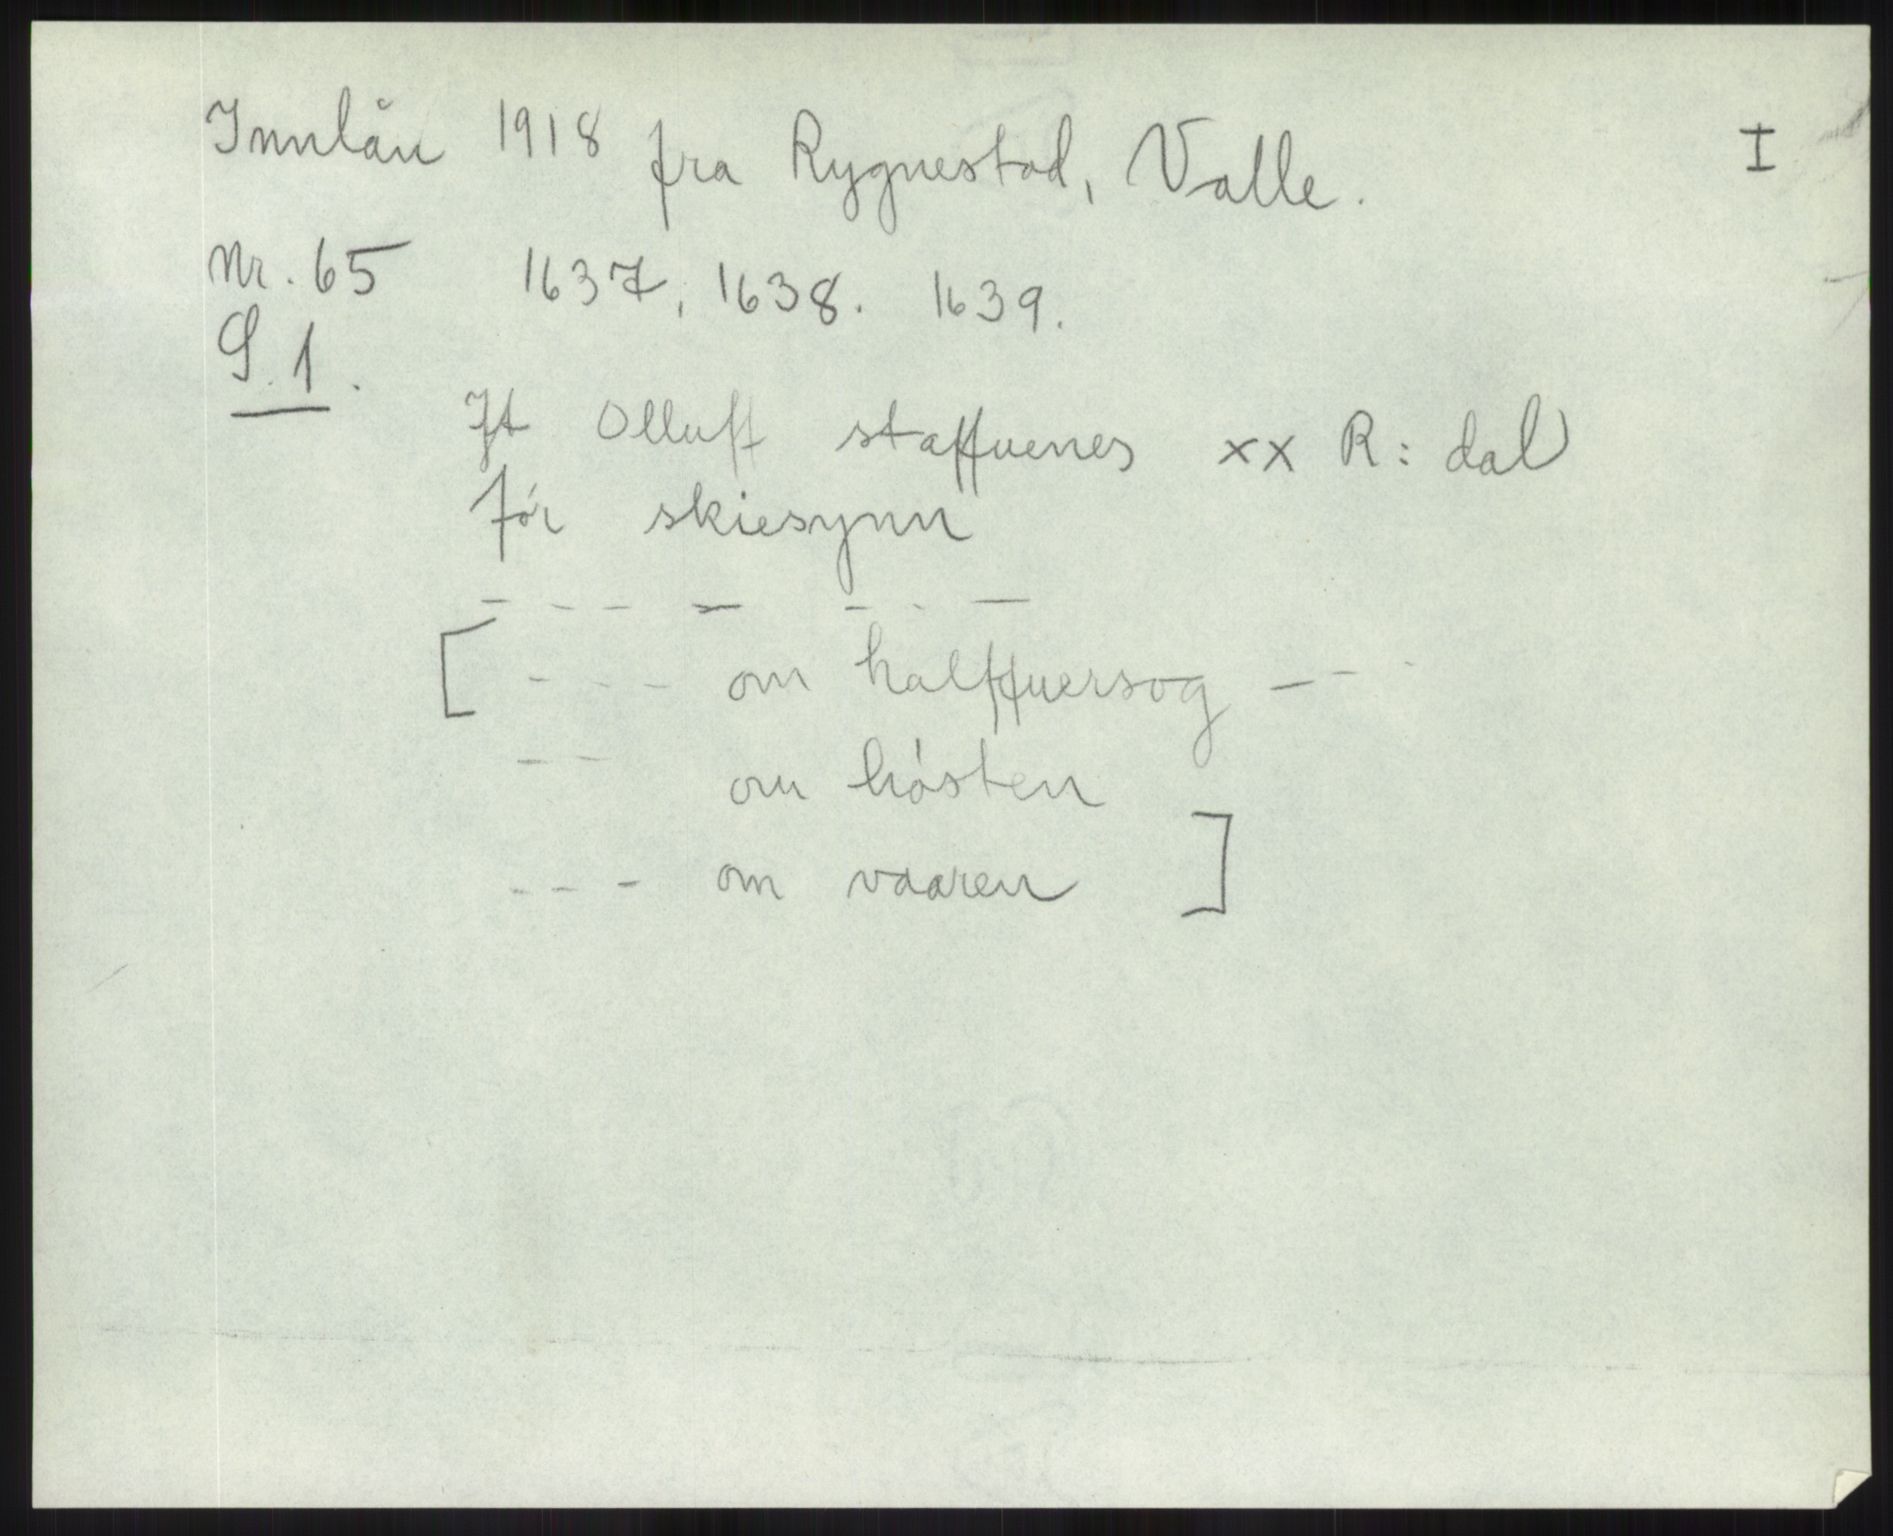 Innlån 1918 fra Rygnestad, Valle. I
Nr. 65 1637, 1638. 1639.
S. 1.
It Olluff staffuenes xx R: dal
för skiesynn
- - - - - - -
[ - - - om halffuersog - - -
- - om hósten
- - - om vaaren ]